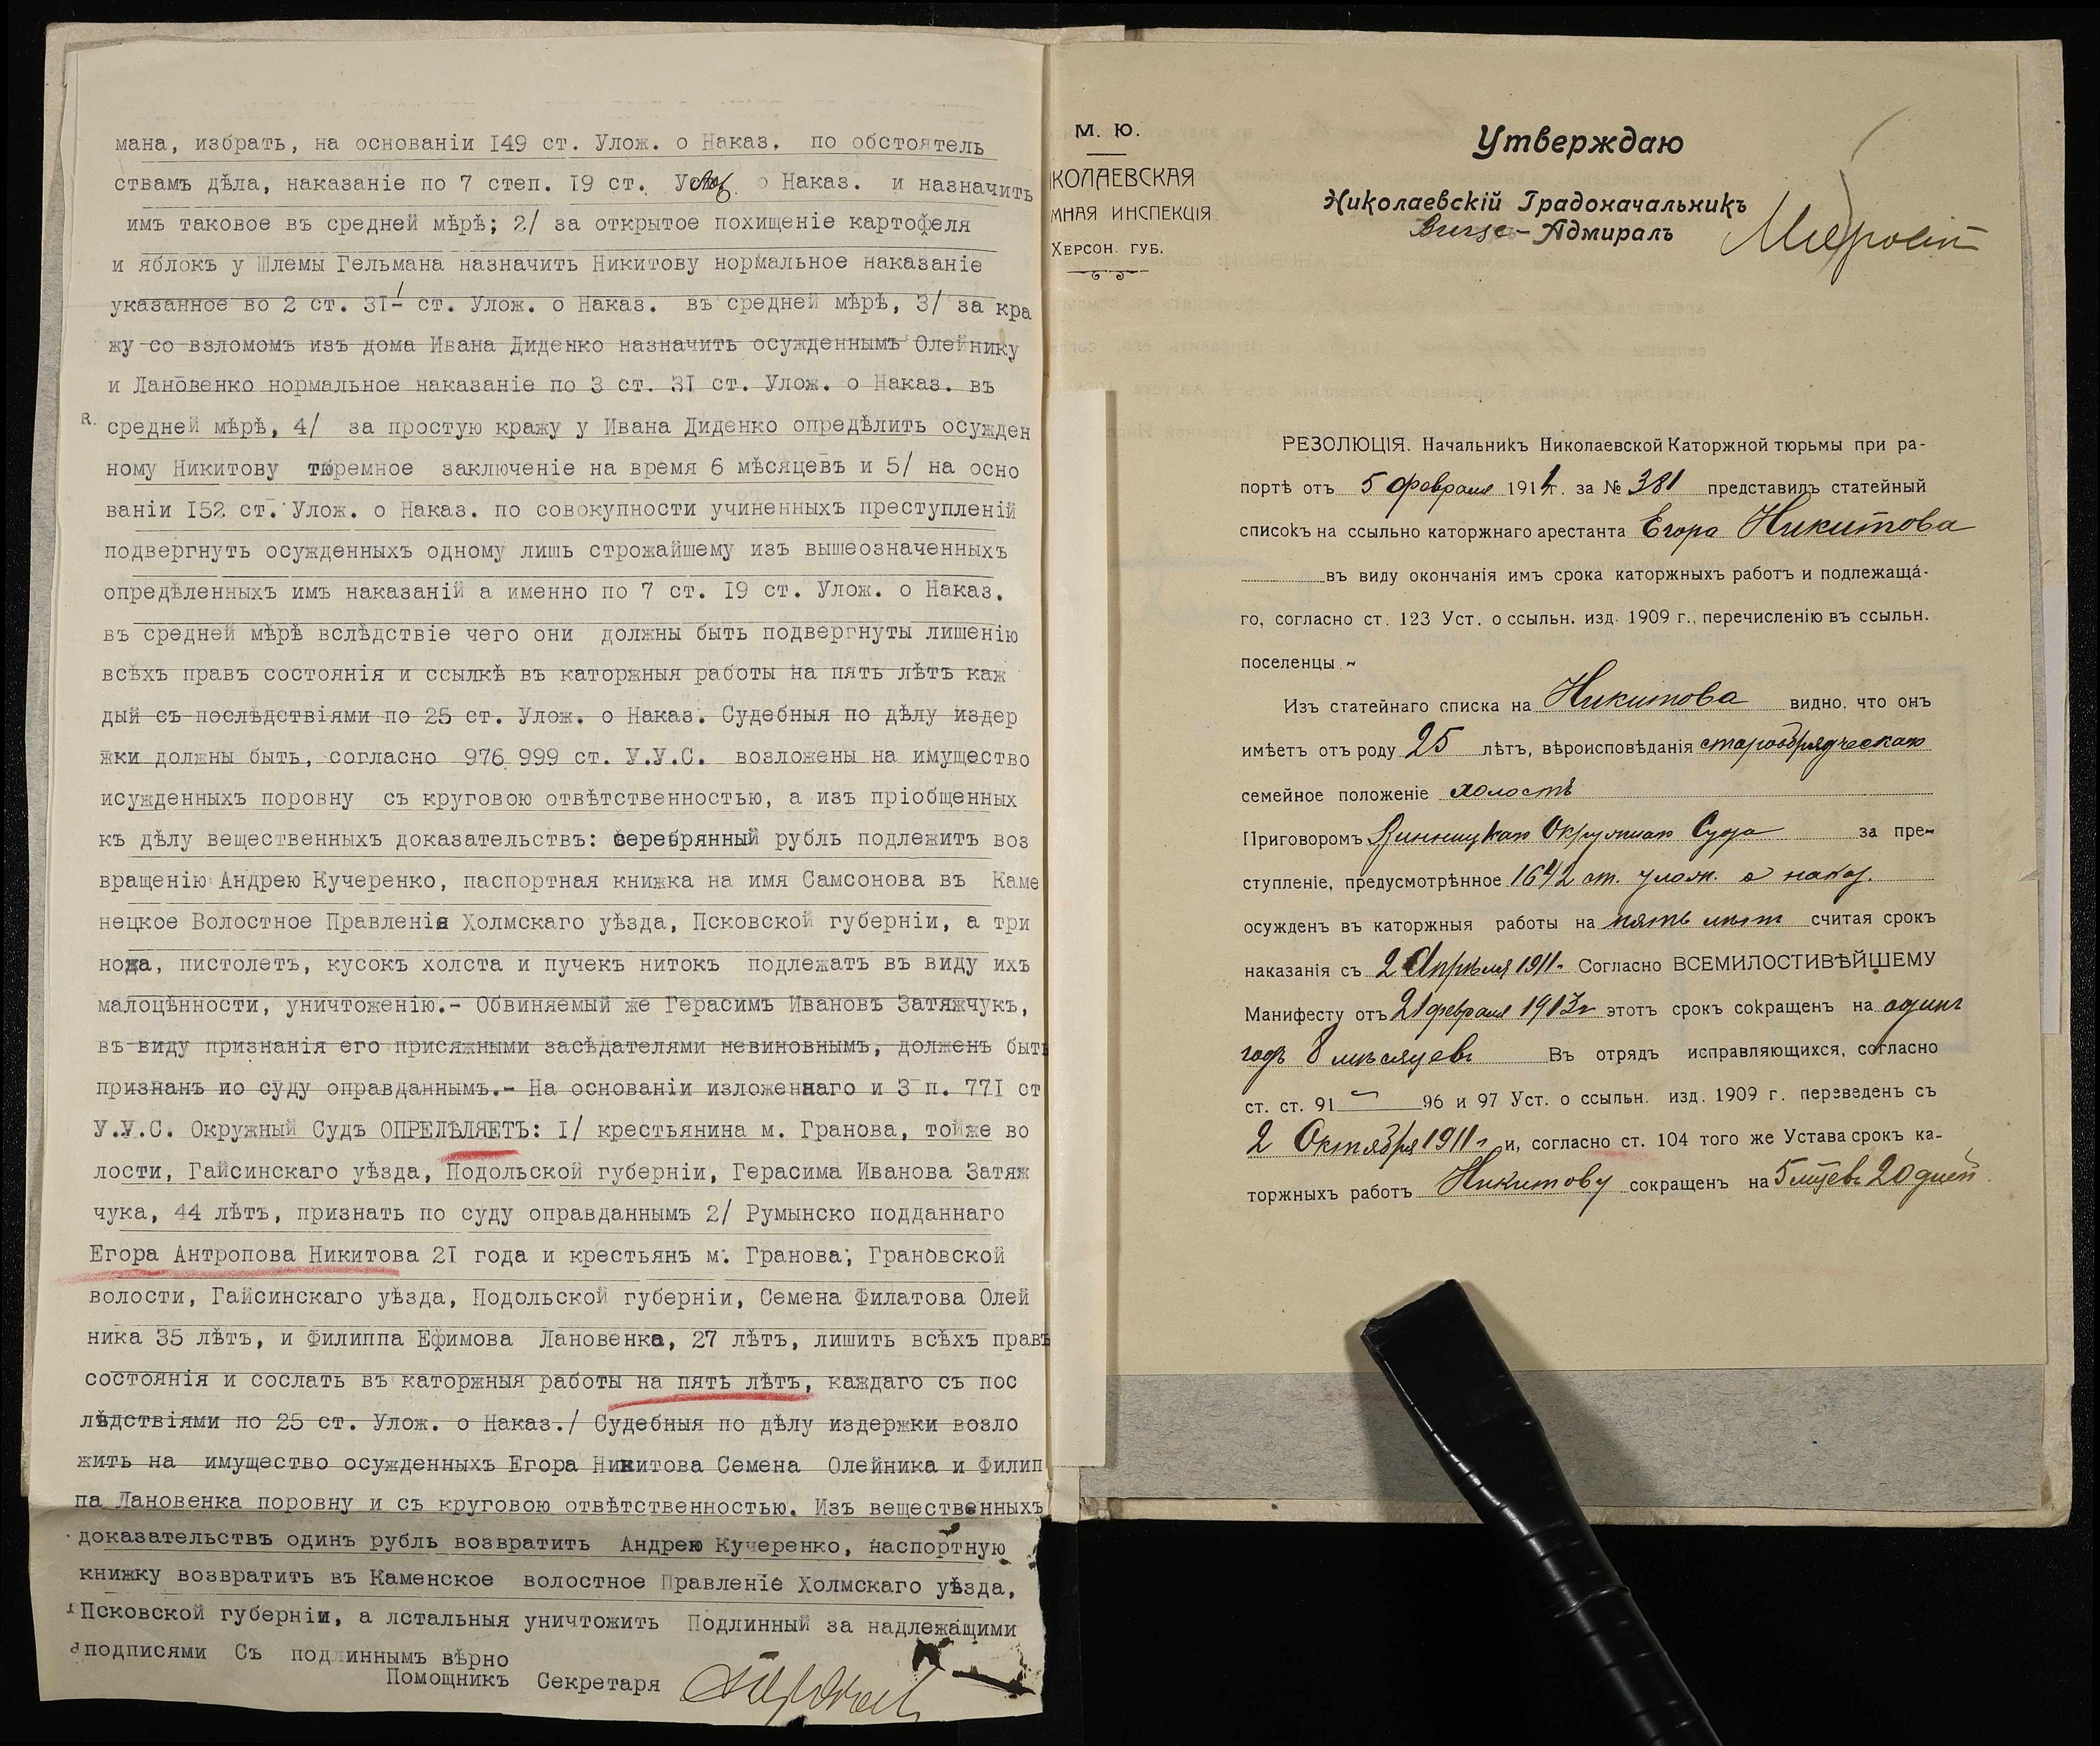 мана, избрать, на основаніи I49 ст. Улож. о Наказ. по обстоятель
ствамъ дѣла, наказаніе по 7 степ. I9 ст. о Наказ. и назначить
имъ таковое въ средней мѣрѣ; 2/ за открытое похищеніе картофеля
и яблокъ у Шлемы Гельмана назначить Никитову нормальное наказаніе
указанное во 2 ст. 3I ст. Улож. о Наказ. въ средней мѣрѣ, 3/ за кра
жу со взломомъ изъ дома Ивана Диденко назначить осужденнымъ Олейнику
и Лановенко нормальное наказаніе по 3 ст. 3I ст. Улож. о Наказ. въ
средней мѣрѣ, 4/ за простую кражу у Ивана Диденко опредѣлить осужден
ному Никитову тюремное заключеніе на время 6 мѣсяцевъ и 5/ на осно
ваніи I52 ст. Улож. о Наказ. по совокупности учиненныхъ преступленій
подвергнуть осужденныхъ одному лишь строжайшему изъ вышеозначенныхъ
опредѣленныхъ имъ наказаній а именно по 7 ст. I9 ст. Улож. о Наказ.
въ средней мѣрѣ вслѣдствіе чего они должны быть подвергнуты лишенію
всѣхъ правъ состоянія и ссылкѣ въ каторжныя работы на пять лѣтъ каж
дый съ послѣдствіями по 25 ст. Улож. о Наказ. Судебныя по дѣлу издер
жки должны быть, согласно 976 999 ст. У.У.С. возложены на имущество
исужденныхъ поровну съ круговою отвѣтственностью, а изъ пріобщенных
къ дѣлу вещественныхъ доказательствъ: серебрянный рубль подлежитъ воз
вращенію Андрею Кучеренко, паспортная книжка на имя Самсонова въ Каме
нецкое Волостное Правленія Холмскаго уѣзда, Псковской губерніи, а три
ножа, пистолетъ, кусокъ холста и пучекъ нитокъ подлежатъ въ виду ихъ
малоцѣнности, уничтоженію.- Обвиняемый же Герасимъ Ивановъ Затяжчукъ,
въ виду признанія его присяжными засѣдателями невиновнымъ, долженъ быть
признанъ по суду оправданнымъ.- На основаніи изложеннаго и 3 п. 77I ст
У.У.С. Окружный Судъ ОПРЕДѢЛЯЕТЪ: I/ крестьянина м. Гранова, тойже во
лости, Гайсинскаго уѣзда, Подольской губерніи, Герасима Иванова Затяж
чука, 44 лѣтъ, признать по суду оправданнымъ 2/ Румынско подданнаго
Егора Антропова Никитова 2I года и крестьянъ м. Гранова, Грановской
волости, Гайсинскаго уѣзда, Подольской губерніи, Семена Филатова Олей
ника 35 лѣтъ, и Филиппа Ефимова Лановенка, 27 лѣтъ, лишить всѣхъ правъ
состоянія и сослать въ каторжныя работы на пять лѣтъ, каждаго съ пос
лѣдствіями по 25 ст. Улож. о Наказ./ Судебныя по дѣлу издержки возло
жить на имущество осужденныхъ Егора Никитова Семена Олейника и Филип
па Лановенка поровну и съ круговою отвѣтственностью. Изъ вещественныхъ
доказательствъ одинъ рубль возвратить Андрею Кучеренко, наспортную
книжку возвратить въ Каменское волостное Правленіе Холмскаго уѣзда,
Псковской губерніи, а лстальныя уничтожить Подлинный за надлежащими
подписями Съ подлиннымъ вѣрно
Помощникъ Секретаря
М. Ю.
КОЛАЕВСКАЯ
МНАЯ ИНСПЕКЦІЯ
ХЕРСОН. ГУБ.
Утверждаю
Николаевскій Градоначальникъ
Вице-Адмиралъ
РЕЗОЛЮЦІЯ. Начальникъ Николаевской Каторжной тюрьмы при ра-
портѣ отъ 5 февраля 1914г. за № 381 представилъ статейный
списокъ на ссыльно каторжнаго арестанта Егора Никитова
въ виду окончанія имъ срока каторжныхъ работъ и подлежаща-
го, согласно ст. 123 Уст. о ссыльн. изд. 1909 г., перечисленію въ ссыльн.
поселенцы ~
Изъ статейнаго списка на Никитова видно, что онъ
имѣетъ отъ роду 25 лѣтъ, вѣроисповѣданія старообрядческаго
семейное положеніе холостъ
Приговоромъ Винницкаго Окружнаго Суда за пре-
ступленіе, предусмотрѣнное 1642 ст. улож. о наказ.
осужденъ въ каторжныя работы на пять лѣтъ считая срокъ
наказанія съ 2 Апрѣля 1911г. Согласно ВСЕМИЛОСТИВѢЙШЕМУ
Манифесту отъ 21 февраля 1913г этотъ срокъ сокращенъ на одинъ
годъ 8 мѣсяцевъ Въ отрядъ исправляющихся, согласно
ст. ст. 91 96 и 97 Уст. о ссыльн. изд. 1909 г. переведенъ съ
2 Октября 1911г и, согласно ст. 104 того же Устава срокъ ка-
торжныхъ работъ Никитову сокращенъ на 5 мцевъ 20 дней.